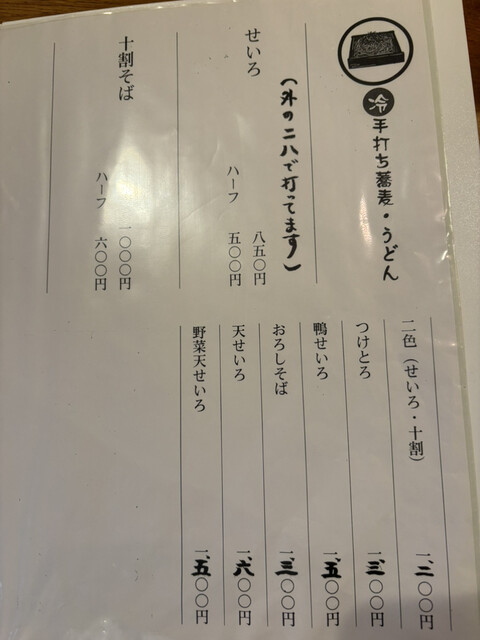 冷 手打ち蕎麦・うどん
せいろ
(外の二八で打ってます)
八五〇円
ハーフ 五〇〇円
十割そば
一〇〇〇円
ハーフ 六〇〇円
二色(せいろ・十割) 一、二〇〇円
つけとろ 一、三〇〇円
鴨せいろ 一、五〇〇円
おろしそば 一、三〇〇円
天せいろ 一、六〇〇円
野菜天せいろ 一、五〇〇円